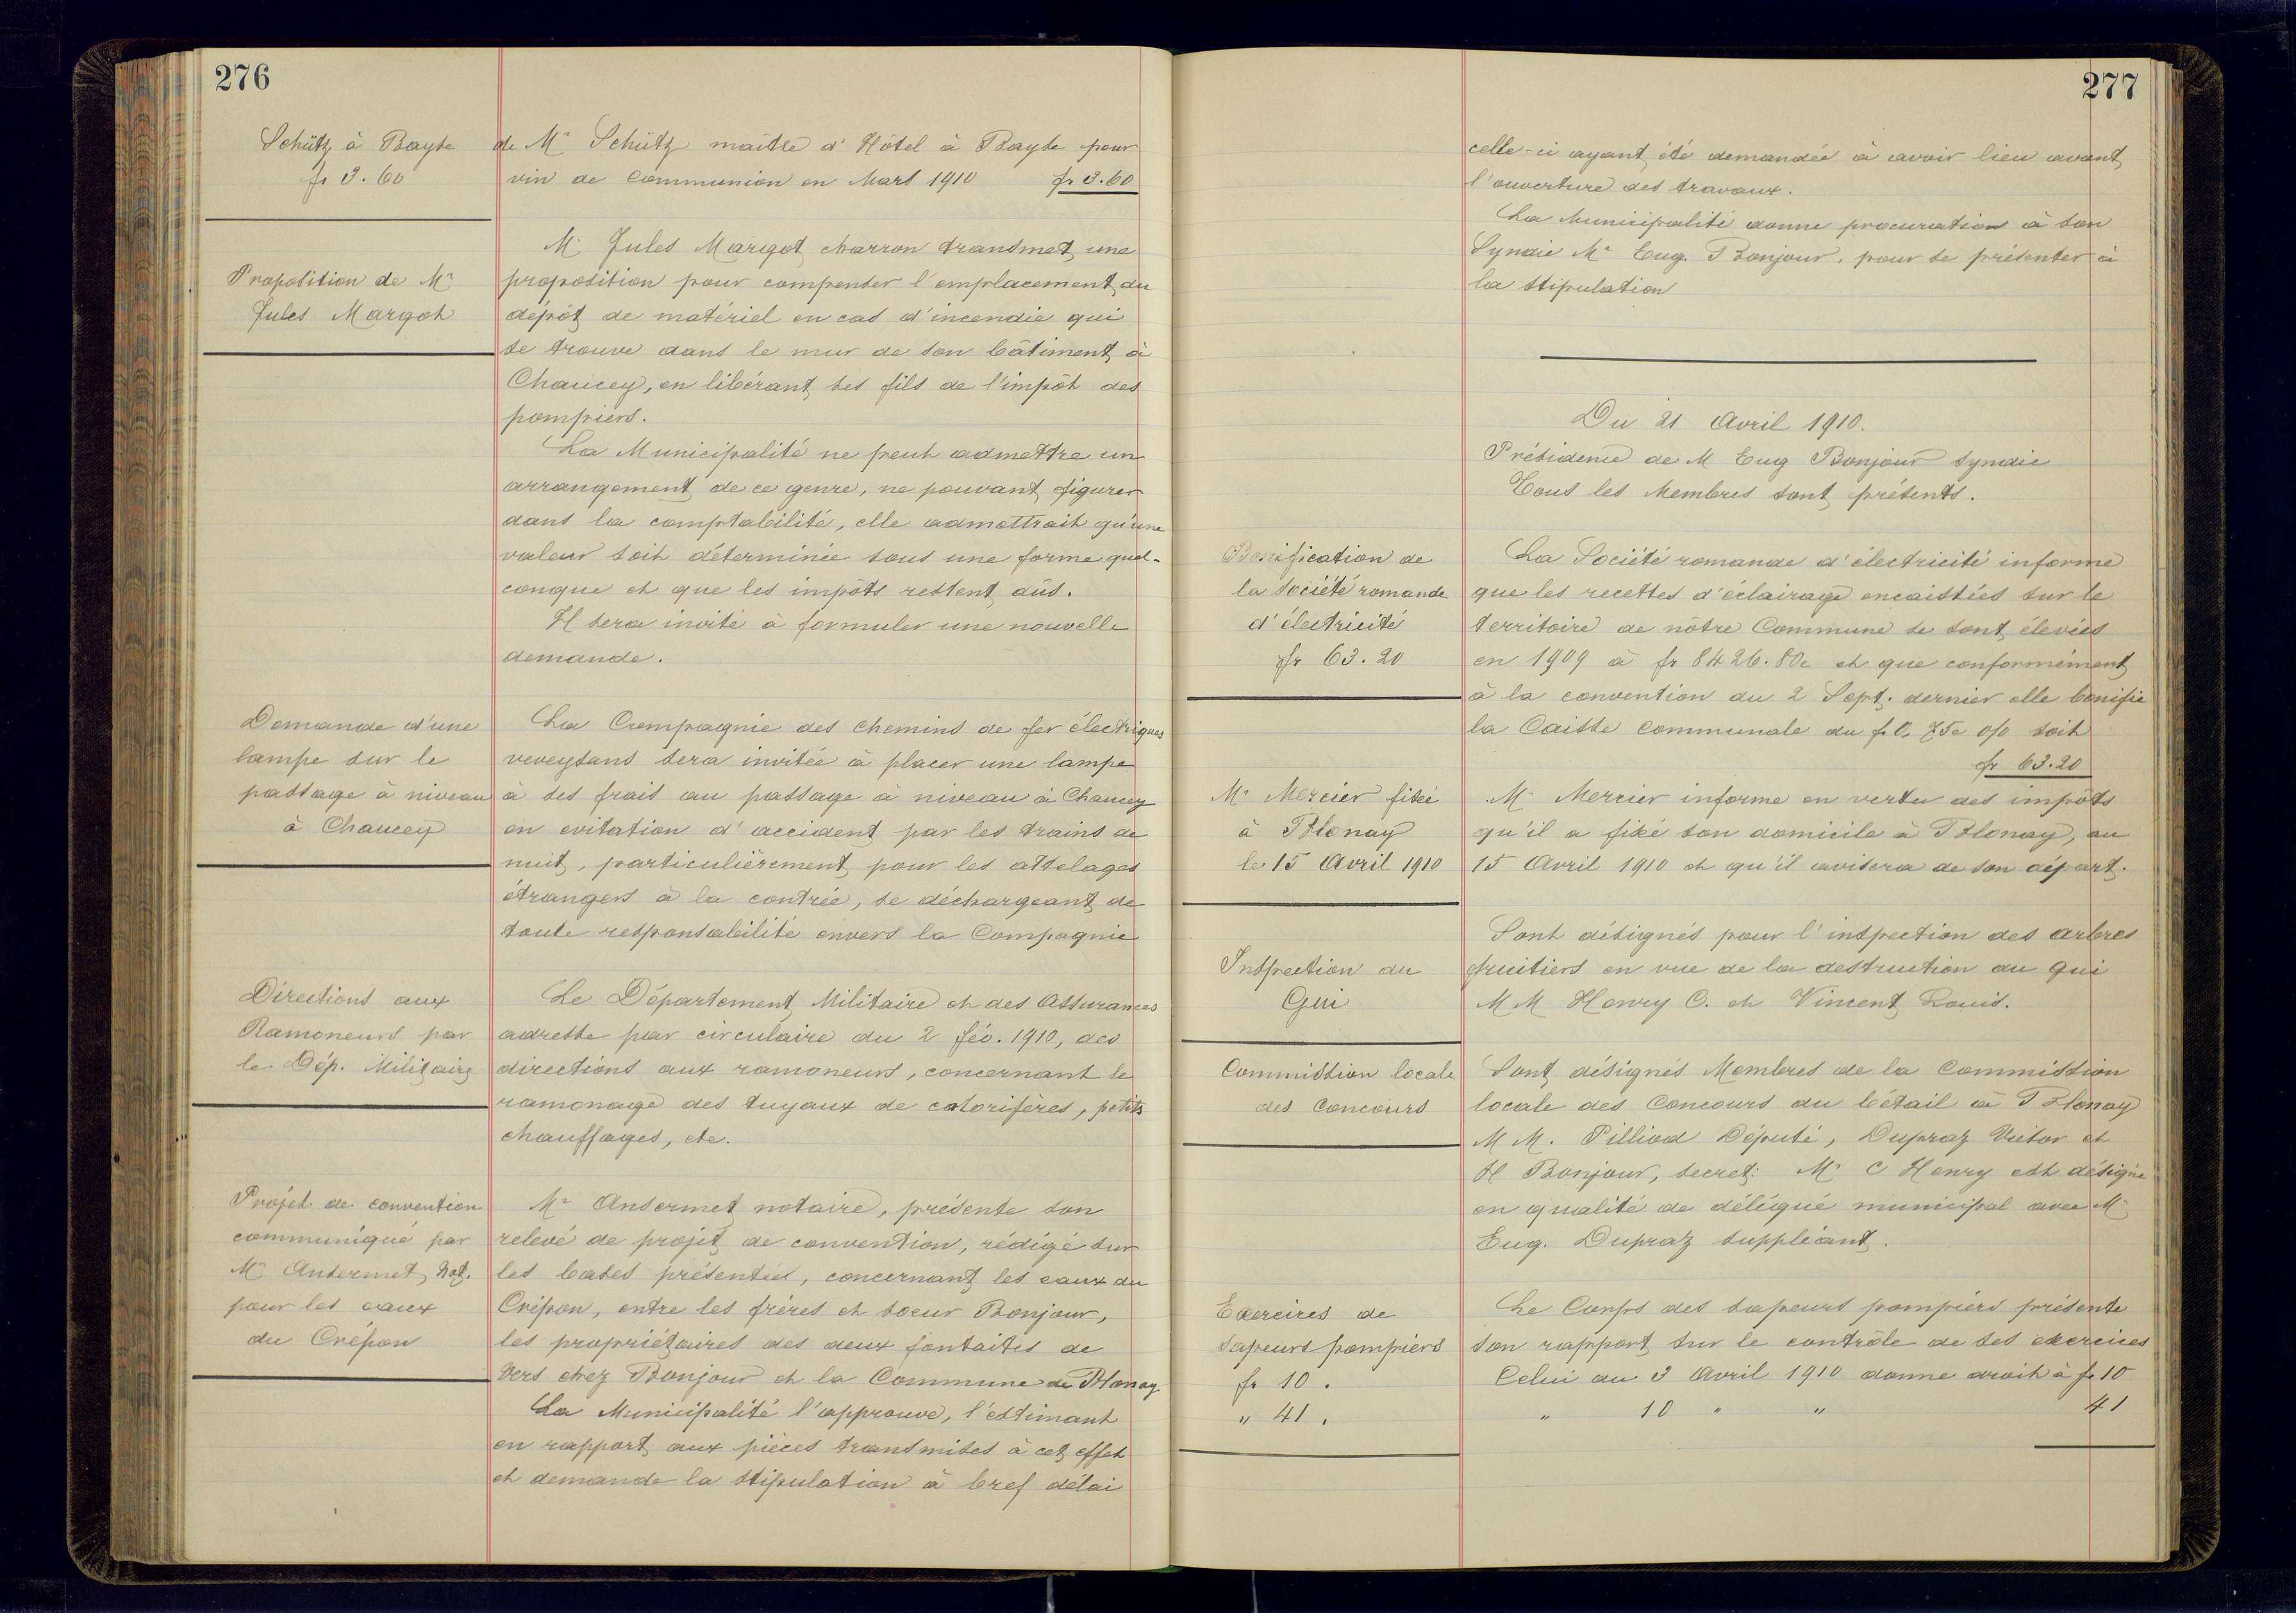 276
Schütz à Bayse
fr 3.60
de Mr Schütz maître d'Hôtel à Bayse pour
vin de Communion en Mars 1910 fr 3.60
Proposition de Mr
Jules Margot
M. Jules Margot charron transmet une
proposition pour compenser l'emplacement du
dépôt de matériel en cas d'incendie qui
se trouve dans le mur de son bâtiment à
Chaucey, en libérant ses fils de l'impôt des
pompiers.
La Municipalité ne peut admettre un
arrangement de ce genre, ne pouvant figurer
dans la comptabilité, elle admettrait qu'une
valeur soit déterminée sous une forme quel-
conque et que les impôts restent dûs.
Il sera invité à formuler une nouvelle
demande.
Demande d'une
lampe sur le
passage à niveau
à Chaucey
La Compagnie des chemins de fer électriques
veveysans sera invitée à placer une lampe
à ses frais au passage à niveau à Chaucey
en evitation d'accident par les trains de
nuit, particulièrement pour les attelages
étrangers à la contrée, se déchargeant de
toute responsabilité envers la Compagnie
Directions aux
Ramoneurs par
le Dép. Militaire
Le Département Militaire et des Assurances
adresse par circulaire du 2 fév. 1910, des
directions aux ramoneurs, concernant le
ramonage des tuyaux de calorifères, petits
chauffages, etc.
Projet de convention
communiqué par
Mr Ansermet, not.
pour les eaux
du Crépon
Mr Ansermet notaire, présente son
relevé de projet de convention, rédigé sur
les bases présentées, concernant les eaux du
Crépon, entre les frères et soeur Bonjour,
les propriétaires des deux fontaites de
Vers chez Bonjour et la Commune de Blonay
La Municipalité l'approuve, l'estimant
en rapport aux pièces transmises à cet effet
et demande la stipulation à bref délai
277
celle-ci ayant été demandée à avoir lieu avant
l'ouverture des travaux.
La Municipalité donne procuration à son
Syndic Mr Eug. Bonjour, pour se présenter à
la stipulation
Du 21 Avril 1910.
Présidence de M Eug Bonjour Syndic
Tous les Membres sont présents.
Bonification de
la Société romande
d'électricité
fr 63.20
La Société romande d'électricité informe
que les recettes d'éclairage encaissées sur le
territoire de nôtre Commune se sont élevées
en 1909 à fr 8426.80c et que conformément
à la convention du 2 Sept. dernier elle bonifie
la Caisse communale du f. 0,75c o/o soit
fr 63.20
Mr Mercier fixé
à Blonay
le 15 Avril 1910
Mr Mercier informe en vertu des impôts
qu'il a fixé son domicile à Blonay, au
15 Avril 1910 et qu'il avisera de son départ.
Inspection du
Gui
Sont désignés pour l'inspection des arbres
fruitiers en vue de la destruction du gui
MM Henry C. et Vincent Louis.
Commission locale
des Concours
Sont désignés Membres de la Commission
locale des Concours du bétail à Blonay
MM. Pilliod Député, Dupraz Victor et
H Bonjour, secret: Mr C Henry est désigné
en qualité de délégué municipal avec Mr
Eug. Dupraz suppléant.
Exercires de
sapeurs pompiers
fr 10.
" 41.
Le Corps des sapeurs pompiers présente
son rapport sur le contrôle de ses exercices
Celui du 3 Avril 1910 donne droit à fr 10
" 10 " " 41